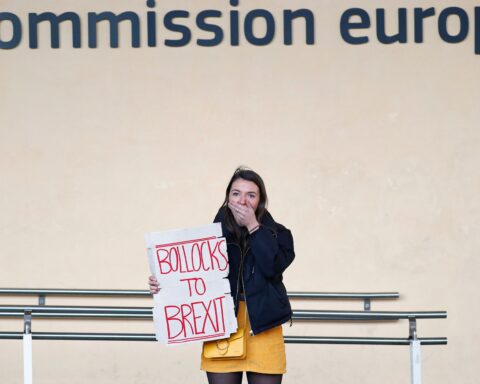 ommission europ
BOLLOCKS
TO
BREXIT